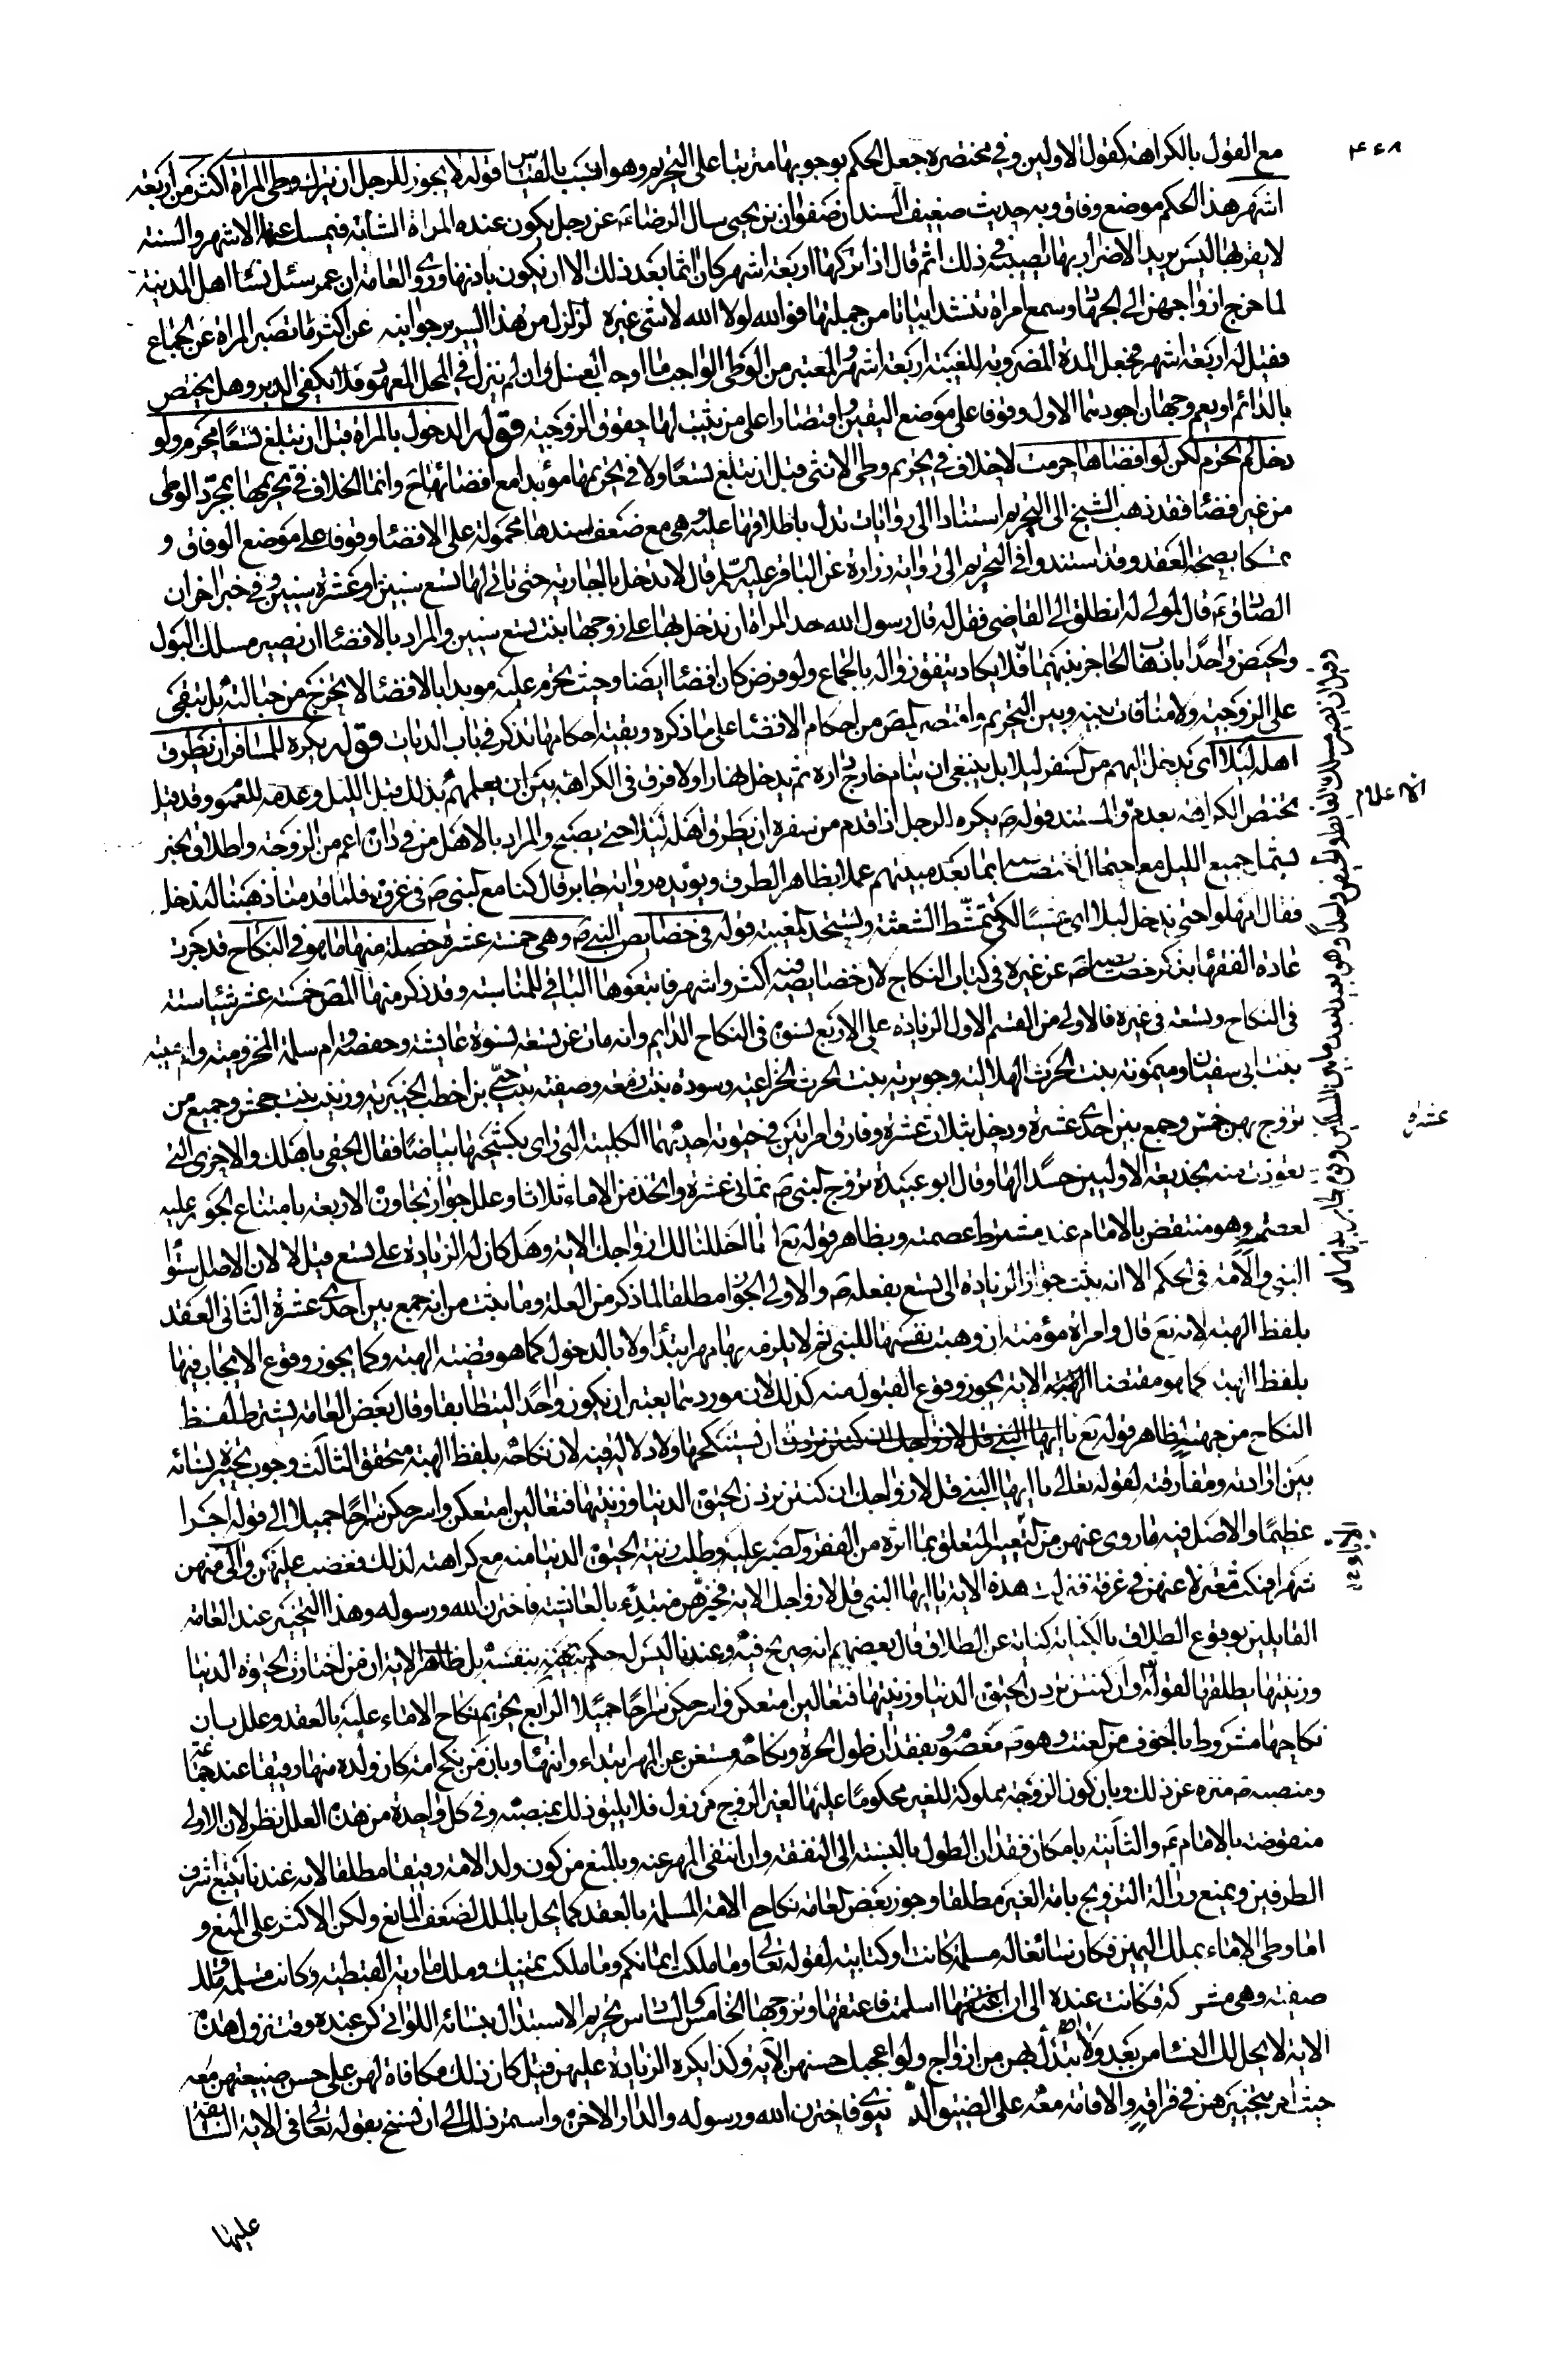 ۴۴۸
مع القول بالكراهة كقول الاولين وفي مختصره جعل الحكم بوجوبها مترتبا على التحريم وهو انسب بالقياس قوله لا يجوز للرجل ان يترك وطى المراة اكثر من اربعة
اشهر هذا الحكم موضع وفاق وبه حديث ضعيف السند ان صفوان بن يحيى سال الرضا ع عن رجل يكون عنده المراة الشابة فيمسك عنها الاشهر والسنة
لا يقربها ليس يريد الاضرار بها لمصيبة في ذلك اثم قال اذا تركها اربعة اشهر كان اثما بعد ذلك الا ان يكون باذنها وروى العامة ان عمر سئل نسا اهل المدينة
لما خرج ازواجهن الى الجهاد وسمع امراة تنشد ابياتا من جملتها فوالله لولا الله لا شئ غيره لزلزل من هذا السرير جوانبه عن اكثر ما تصبر المراة عن الجماع
فقيل له اربعة اشهر فجعل المدة المضروبة للغيبة اربعة اشهر والمعتبر من الوطى الواجب ما اوجب الغسل وان لم ينزل في المحل المعهود فلا يكفي الدبر وهل يختص
بالدائم او يعم وجهان اجودهما الاول وقوفا على موضع اليقين واقتصارا على من يثبت لها حقوق الزوجية قوله الدخول بالمراة قبل ان تبلغ تسعا محرم ولو
دخل لم تحرم لكن لو افضاها حرمت لا خلاف في تحريم وطى الانثى قبل ان تبلغ تسعا ولا في تحريمها مؤبدا مع افضائها ح وانما الخلاف في تحريمها بمجرد الوطى
من غير افضا فقد ذهب الشيخ الى التحريم استنادا الى روايات تدل باطلاقها عليه وهي مع ضعف سندها محمولة على الافضا وقوفا على موضع الوفاق و
تمسكا بصحة العقد وقد استندوا في التحريم الى رواية زرارة عن الباقر عليه السلم قال لا يدخل بالجارية حتى ياتي لها تسع سنين او عشرة سنين وفي خبر اخر ان
الصادق ع قال لمولى له انطلق الى القاضي فقل له قال رسول الله حد المراة ان يدخل بها على زوجها بنت تسع سنين والمراد بالافضا ان تصير مسلك البول
والحيض واحدا باذهاب الحاجز بينهما فلا يكاد يتفق زواله بالجماع ولو فرض كان افضا ايضا وحيث تحرم عليه مؤبدا بالافضا لا تخرج من حبالته بل تبقى
على الزوجية ولا منافات بينه وبين التحريم واقتصر المص من احكام الافضا على ما ذكره وبقية احكامها تذكر في باب الديات قوله يكره للمسافر ان يطرق
اهله ليلا اى يدخل اليهم من السفر ليلا بل ينبغي ان ينام خارج داره ثم يدخل نهارا ولا فرق في الكراهة بين ان يعلمهم بذلك قبل الليل وعدمه للعموم وقد قيل
تختص الكراهة بعدم والمستند قوله ص يكره للرجل اذا قدم من سفره ان يطرق اهله ليلا حتى يصبح والمراد بالاهل من في داره اعم من الزوجة واطلاق الخبر
الاعلام
يشمل جميع الليل مع احتمال اختصاصه بما بعد مبيتهم عملا بظاهر الطروق ويؤيده رواية جابر قال كنا مع النبي ص في غزوة فلما قدمنا ذهبنا لندخل
فقال امهلوا حتى ندخل ليلا اى عشيا لكي تمتشط الشعثة وتستحد المغيبة قوله في خصايص النبي ص وهي خمسة عشرة خصلة منها ما هو في النكاح قد جرت
عادة الفقها بذكر خصايصه ص عن غيره في كتاب النكاح لان خصايصه فيه اكثر واشهر فاتبعوها الباقي للمناسبة وقد ذكر منها المص خمسة عشر شيئا ستة
في النكاح وتسعة في غيره فالاولى من القسم الاول الزيادة على الاربع نسوة في النكاح الدايم وانه مات عن تسعة نسوة عايشة وحفصة وام سلمة المخزومية وام حبيبة
بنت ابي سفيان وميمونة بنت الحرث الهلالية وجويرية بنت الحرث الخزاعية وسودة بنت زمعة وصفية بنت حيي بن اخطب الخيبرية وزينب بنت جحش وجميع من
تزوج بهن خمس وجمع بين احدى عشرة ودخل بثلاث عشرة وفارق امراتين في حيوته احديهما الكلبية التي راى بكشحها بياضا فقال الحقي باهلك والاخرى التي
عشرة
تعوذت منه بخديعة الاوليين حسدا لها وقال ابو عبيدة تزوج النبي ص ثماني عشرة واتخذ من الاماء ثلاثا وعلل جواز تجاوزه الاربعة بامتناع الجور عليه
لعصمته وهو منتقض بالامام عند مشترط عصمته وبظاهر قوله تع انا احللنا لك ازواجك الاية وهل كان له الزيادة على تسع قيل لا لان الاصل استواء
النبي والامة في الحكم الا انه ثبت جواز الزيادة الى تسع بفعله ص والاولى الجواز مطلقا لما ذكر من العلة وما ثبت من انه جمع بين احدى عشرة الثاني العقد
بلفظ الهبة لانه تع قال وامراة مؤمنة ان وهبت نفسها للنبي ثم لا يلزمه بها مهر ابتدا ولا بالدخول كما هو قضية الهبة وكما يجوز وقوع الايجاب فيها
بلفظ الهبة كما هو مقتضا الاية يجوز وقوع القبول منه كذلك لان موردهما يعتبر ان يكون واحدا ليتطابقا وقال بعض العامة يشترط لفظ
النكاح من جهته لظاهر قوله تع ان يستنكحها ولا دلالة فيه لان نكاحه بلفظ الهبة متحقق الثالث وجوب تخيير نسائه
بين ارادته ومفارقته لقوله تعالى يا ايها النبي قل لازواجك ان كنتن تردن الحيوة الدنيا وزينتها فتعالين امتعكن واسرحكن سراحا جميلا الى قوله اجرا
عظيما والاصل فيه ما روى عنهن من التعيير المتعلق بما اثره من الفقر والصبر عليه وطلب زينة الحيوة الدنيا منه مع كراهته لذلك فغضب عليهن والى منهن
شهرا فمكث معتزلا عنهن في غرفة فنزلت هذه الاية يا ايها النبي قل لازواجك الاية فخيرهن مبتدء بالعايشة فاخترن الله ورسوله وهذا التخيير عند العامة
القايلين بوقوع الطلاق بالكناية كناية عن الطلاق قال بعضهم انه صريح فيه وعندنا ليس له حكم بنفسه بل ظاهر الاية ان من اختارت الحيوة الدنيا
وزينتها يطلقها لقوله وان كنتن تردن الحيوة الدنيا وزينتها فتعالين امتعكن واسرحكن سراحا جميلا الرابع تحريم نكاح الاماء عليه بالعقد وعلل بان
نكاحها مشروط بالخوف من العنت وهو ص معصوم وبفقدان طول الحرة ونكاحه مستغن عن المهر ابتداء وانتهاء وبان من نكح امة كان ولده منها رقيقا عند جماعة
ومنصبه ص منزه عن ذلك وبان كون الزوجة مملوكة للغير محكوما عليها لغير الزوج مرذول فلا يليق ذلك بمنصبه وفي كل واحدة من هذه العلل نظر لان الاولى
منقوضة بالامام ع والثانية بامكان فقدان الطول بالنسبة الى النفقة وان انتفى المهر عنه وبالمنع من كون ولد الامة رقيقا مطلقا لانه عندنا يتبع اشرف
الطرفين وبمنع رذالة التزويج بامة الغير مطلقا وجوز بعض العامة نكاح الامة المسلمة بالعقد كما يحل بالملك لضعف المانع ولكن الاكثر على المنع و
اما وطى الاماء بملك اليمين فكان سائغا له مسلمة كانت او كتابية لقوله تعالى او ما ملكت ايمانكم وما ملكت يمينك وملك مارية القبطية وكانت مسلمة وملك
صفية وهي مشركة فكانت عنده الى ان اسلمت فاعتقها وتزوجها الخامس السادس تحريم الاستبدال بنسائه اللواتي كن عنده وقت نزول هذه
الاية لا يحل لك النساء من بعد ولا ان تبدل بهن من ازواج ولو اعجبك حسنهن الاية وكذا يكره الزيادة عليهن قيل كان ذلك مكافاة لهن على حسن صنيعهن معه
حيث امر بتخييرهن في فراقه والاقامة معه على الضيق الدنيوى فاخترن الله ورسوله والدار الاخرة واستمر ذلك الى ان نسخ بقوله تعالى في الاية السابقة
عليها